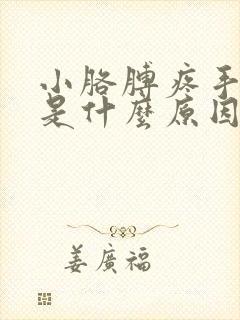 小胳膊疼手
是什麼原因
姜廣福